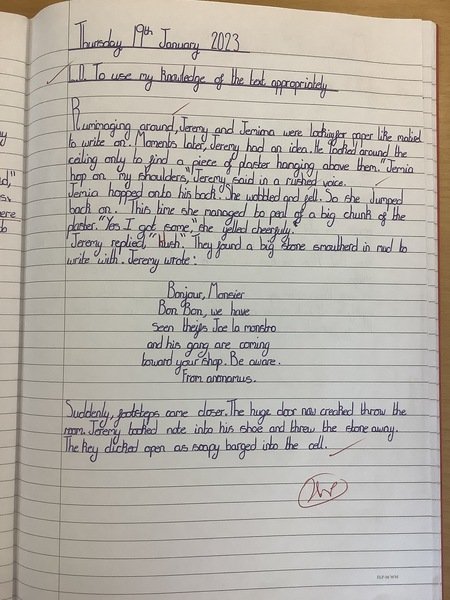 Thursday 19th January 2023
L.O. To use my knowledge of the text appropriately
Rummaging around, Jeremy and Jemima were looking for paper like matirel
to write on. Moments later, Jeremy had an idea. He looked around the
ceiling only to find a piece of plaster hanging above them. "Jemia
hop on my shoulders," Jeremy said in a rushed voice.
Jemia hopped onto his back. She wobbled and fell. So she Jumped
back on. "This time she managed to peal of a big chunk of the
plaster. "Yes I got some," she yelled cheerfuly."
Jeremy replied, "hush". They found a big stone smoulherd in mud to
write with. Jeremy wrote:
Bonjour, Monsier
Bon Bon, we have
seen theifs Joe la monstro
and his gang are coming
toward your shop. Be aware.
From anonamus.
Suddenly, footsteps came closer. The huge door now creaked throw the
room. Jeremy note into his shoe and threw the stone away.
The key clicked open as soapy barged into the cell.